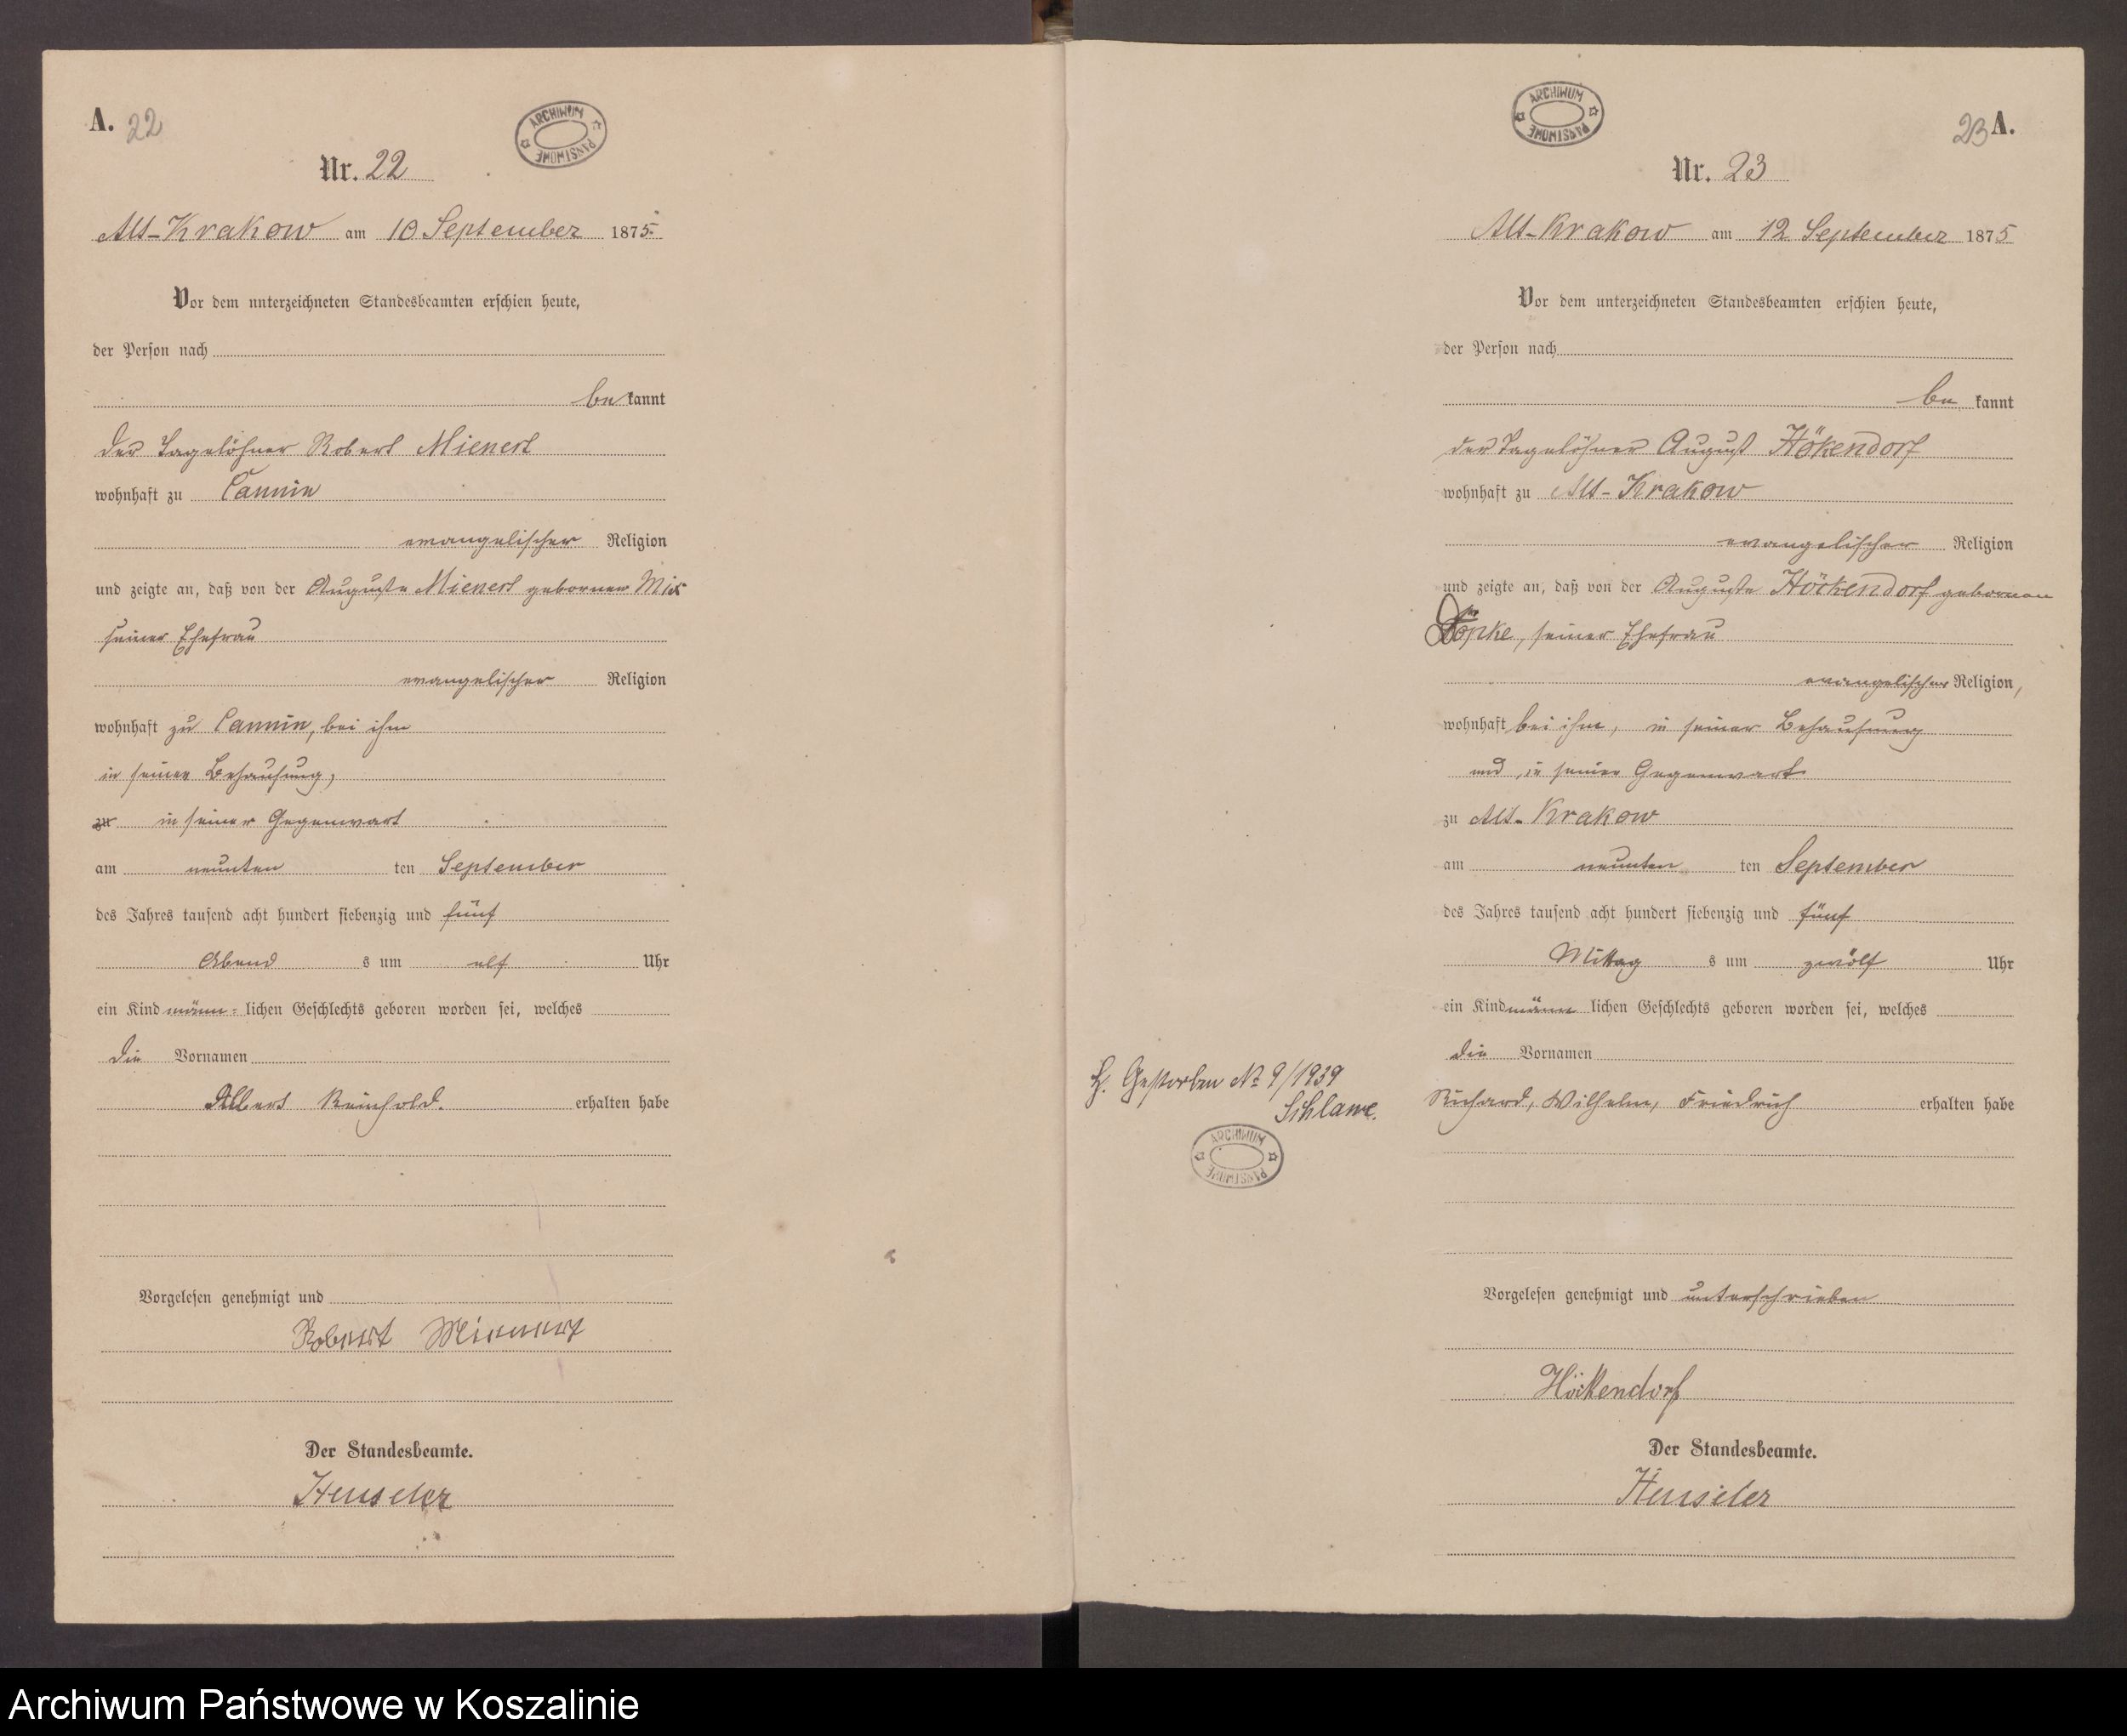 A. 22
ARCHIWUM PAŃSTWOWE
Nr. 22
Alt-Krakow am 10 September 1875.
Vor dem unterzeichneten Standesbeamten erschien heute,
der Person nach
be kannt
der Tagelöhner Robert Mienert
wohnhaft zu Cannin
evangelischer Religion
und zeigte an, daß von der Auguste Mienert geborner
seiner Ehefrau
evangelischer Religion
wohnhaft zu Cannin, bei ihm
in seiner Behausung,
zu in seiner Gegenwart
am neunten ten September
des Jahres tausend acht hundert siebenzig und fünf
Abend s um elf Uhr
ein Kind männ= lichen Geschlechts geboren worden sei, welches
die Vornamen
Albert Reinhold. erhalten habe
Vorgelesen genehmigt und
Robert Mienert
Der Standesbeamte.
Henseler
ARCHIWUM PAŃSTWOWE
23 A.
Nr. 23
Alt-Krakow am 12 September 1875
Vor dem unterzeichneten Standesbeamten erschien heute,
der Person nach
be kannt
der Tagelöhner August Hökendorf
wohnhaft zu Alt-Krakow
evangelischer Religion
und zeigte an, daß von der Auguste Höckendorf gebornen
seiner Ehefrau
evangelischer Religion,
wohnhaft bei ihm, in seiner Behausung
und in seiner Gegenwart
zu Alt-Krakow
am neunten ten September
des Jahres tausend acht hundert siebenzig und fünf
Mittag s um zwölf Uhr
ein Kind männ lichen Geschlechts geboren worden sei, welches
die Vornamen
Richard, Wilhelm, Friedrich erhalten habe
H. Gestorben No 9/1939
Schlawe.
ARCHIWUM PAŃSTWOWE
Vorgelesen genehmigt und unterschrieben
Höckendorf
Der Standesbeamte.
Henseler
Archiwum Państwowe w Koszalinie